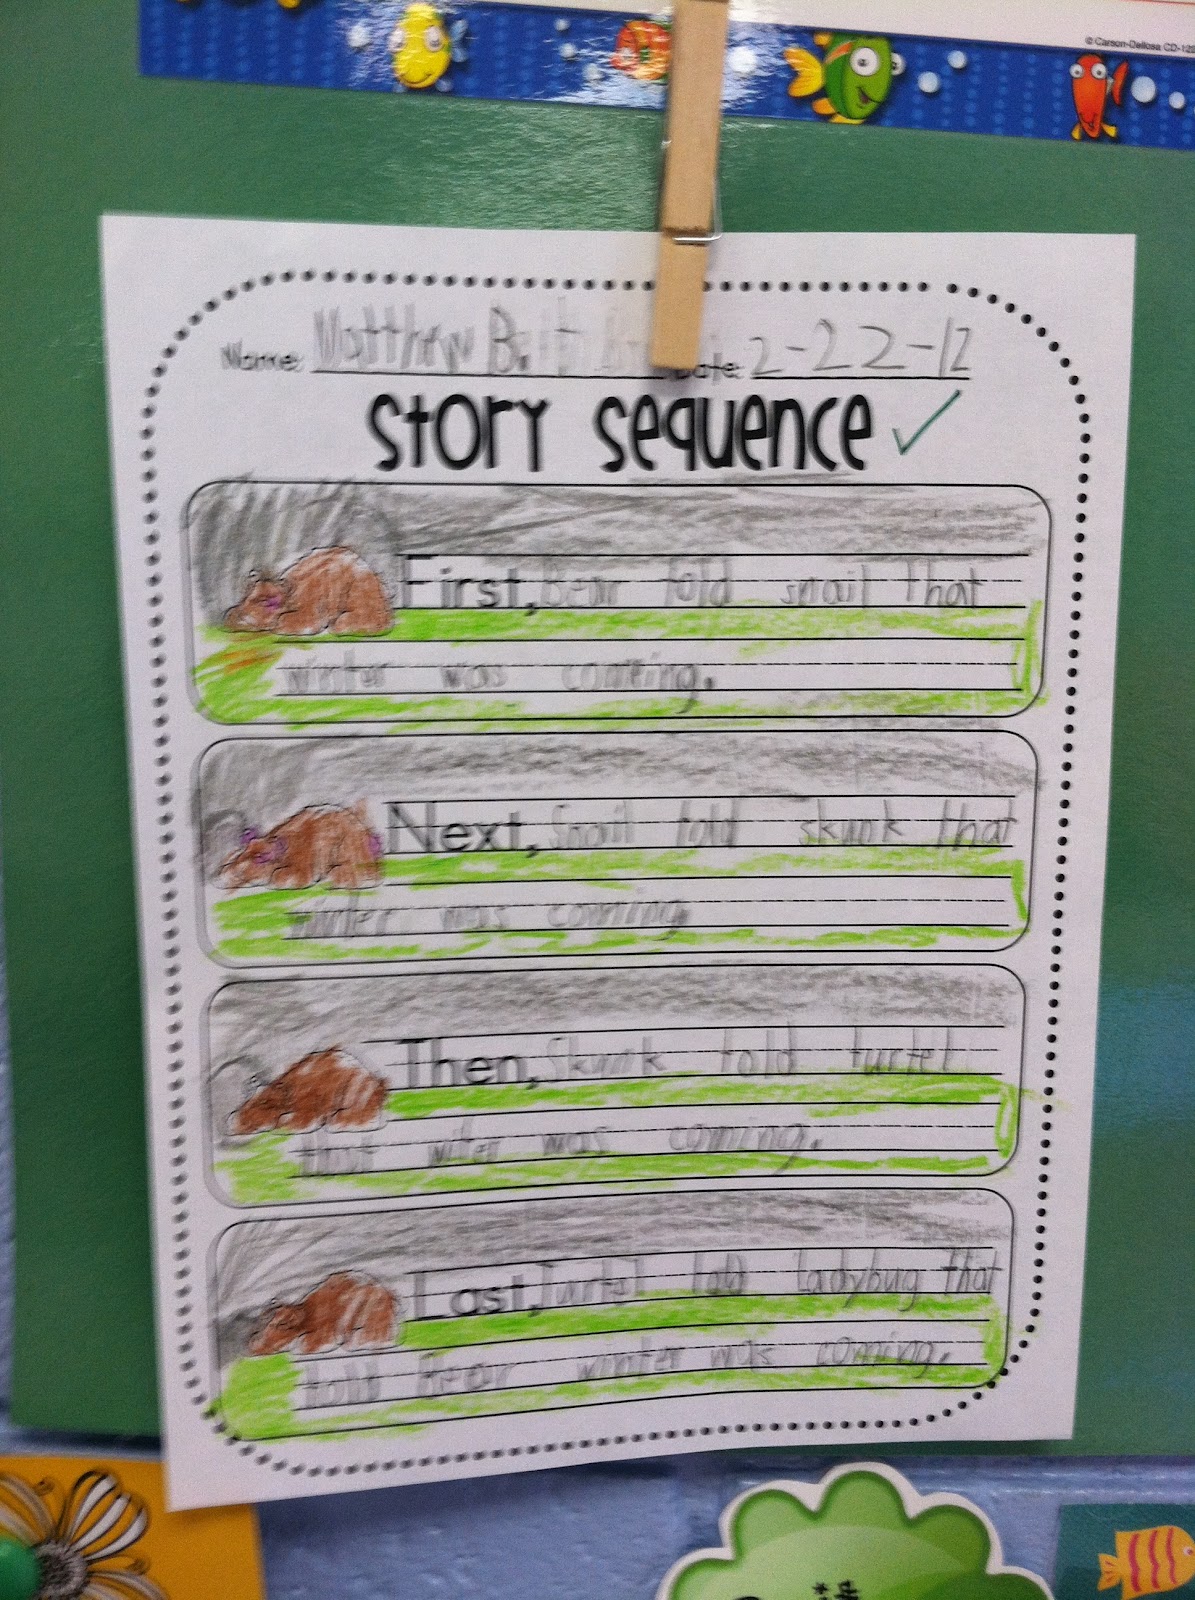 © Carson-Dellosa CD-12
Name: Matthew B. Date: 2-22-12
Story Sequence
First, Bear told snail that
winter was coming.
Next, Snail told skunk that
winter was coming.
Then, Skunk told turtel
that witer was coming.
Last, Turtel told ladybug that
told Bear winter was coming.